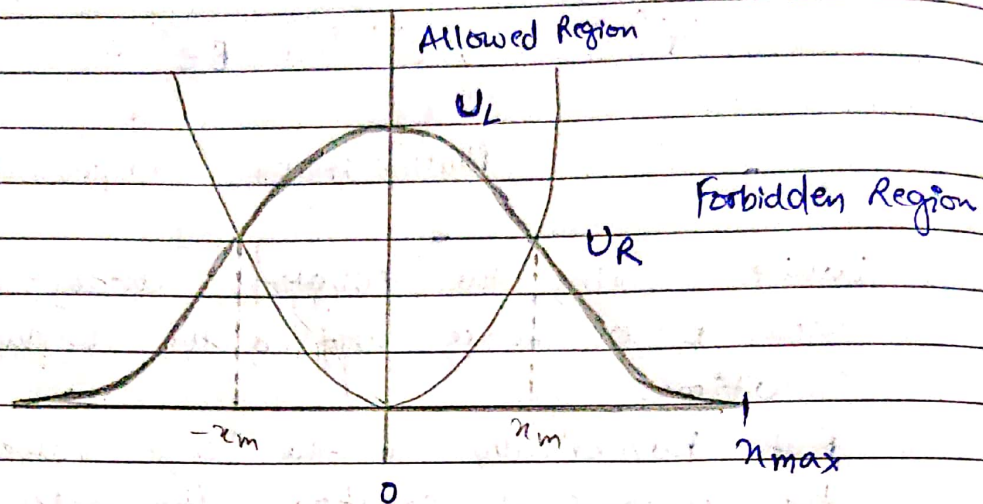 Allowed Region
U_L
Forbidden Region
U_R
-x_m
x_m
x_max
0